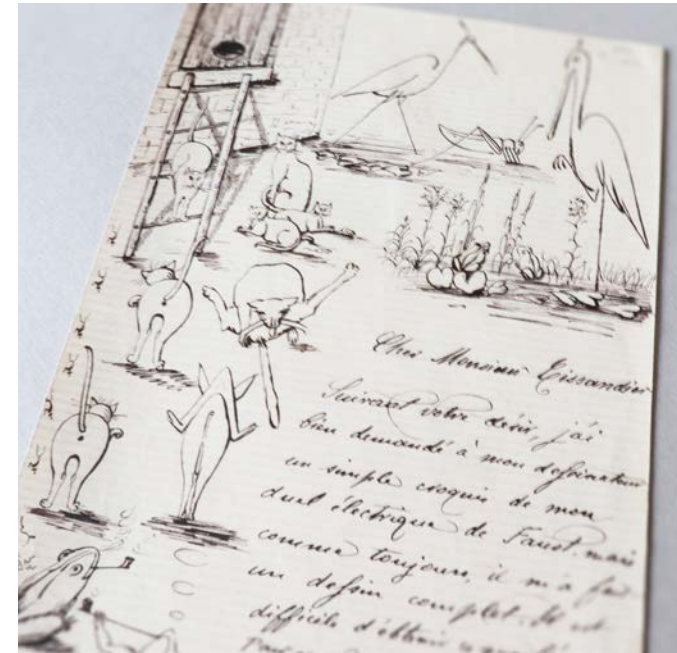 Cher Monsieur Tissandier
Suivant votre désir, j'ai
bien demandé à mon dessinateur
un simple croquis de mon
duel électrique de Faust. mais
comme toujours, il m'a fait
un dessin complet. Il est
difficile d'obtenir